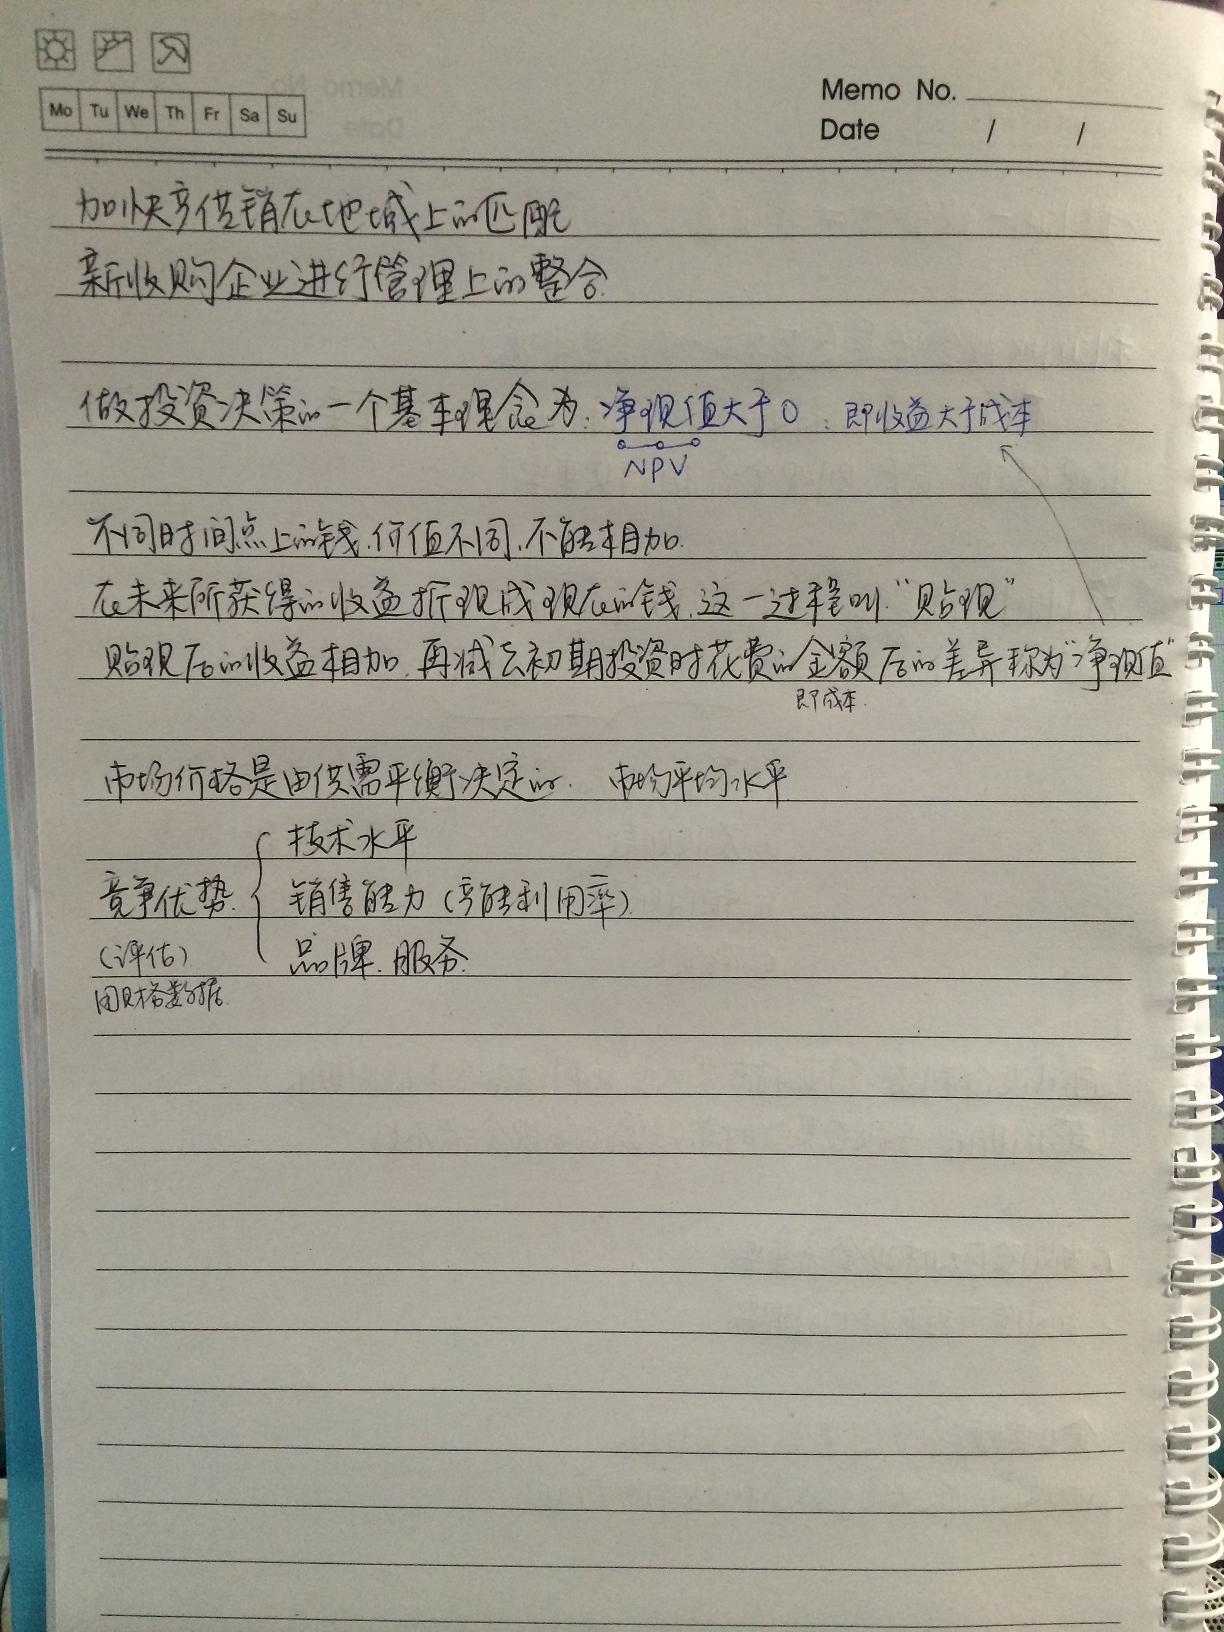 Mo Tu We Th Fr Sa Su
Memo No.
Date / /
加快产供销在地域上的匹配
新收购企业进行管理上的整合
做投资决策的一个基本理念为:净现值大于0:即收益大于成本
NPV
不同时间点上的钱,价值不同,不能相加.
在未来所获得的收益折现成现在的钱,这一过程叫"贴现"
贴现后的收益相加,再减去初期投资时花费的金额后的差异称为"净现值"
即成本
市场价格是由供需平衡决定的. 市场平均水平
技术水平
竞争优势 { 销售能力(产能利用率)
(评估) 品牌.服务.
用财务数据.